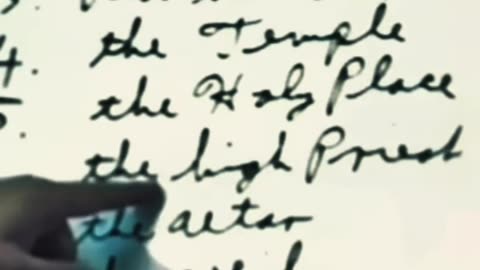 4. the Temple
5. the Holy Place
the high Priest
the altar